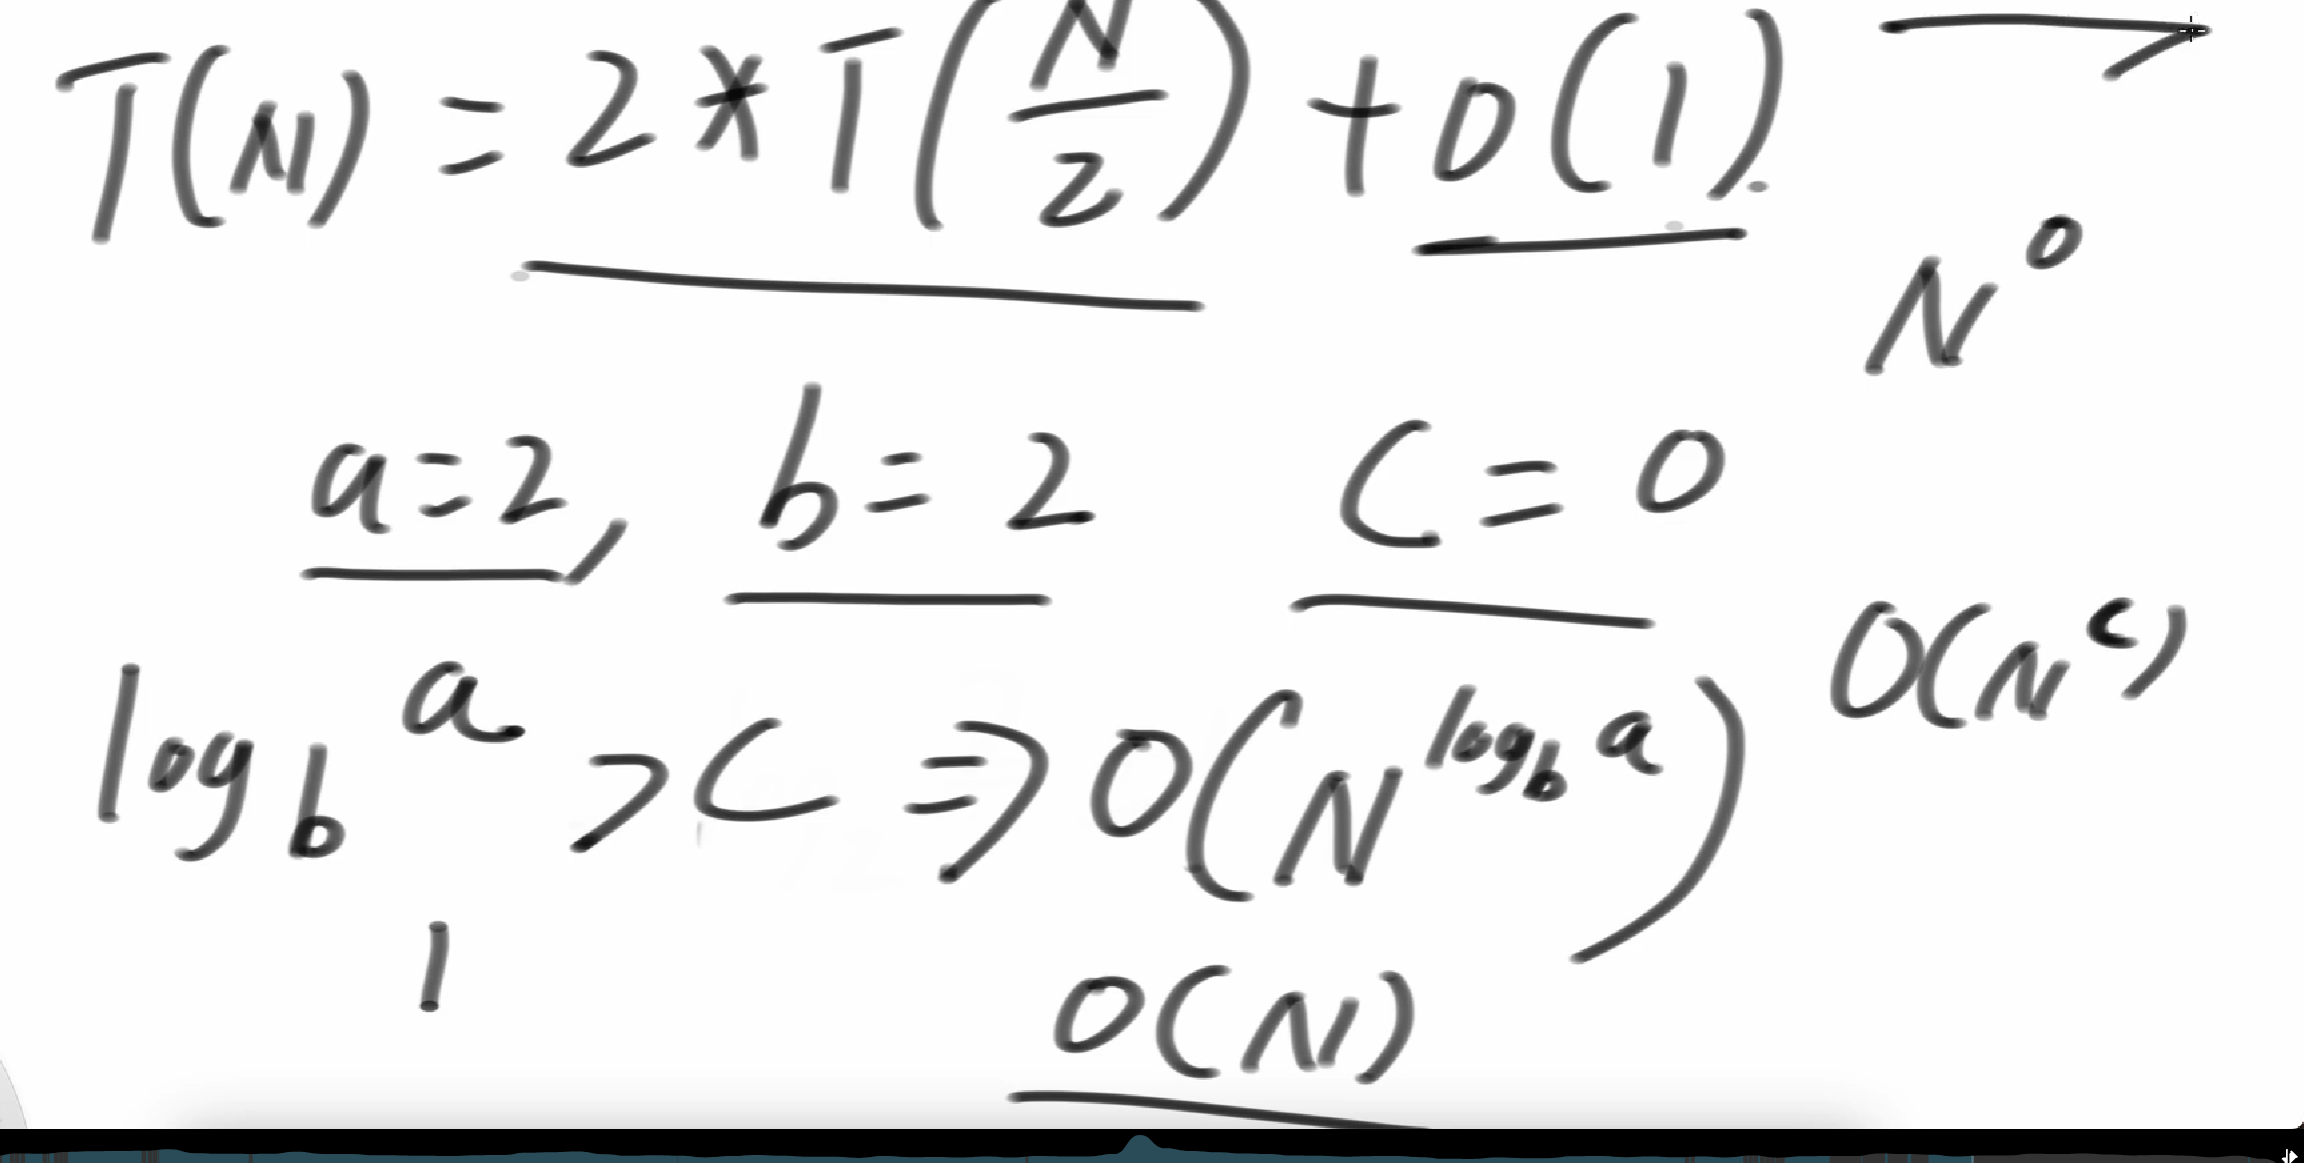 T(N) = 2 * T(N/2) + O(1).
N^0
a=2, b=2 C=0
O(N^c)
log_b a > C ⇒ O(N^(log_b a))
1
O(N)